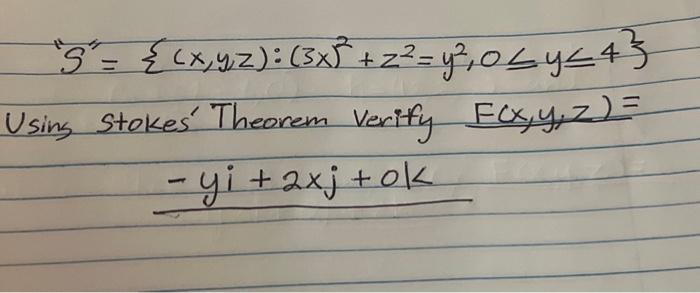 "S" = { (x,y,z) : (3x)² + z² = y², 0 ≤ y ≤ 4 }
Using Stokes' Theorem Verify F(x,y,z) =
-yi + 2xj + 0k